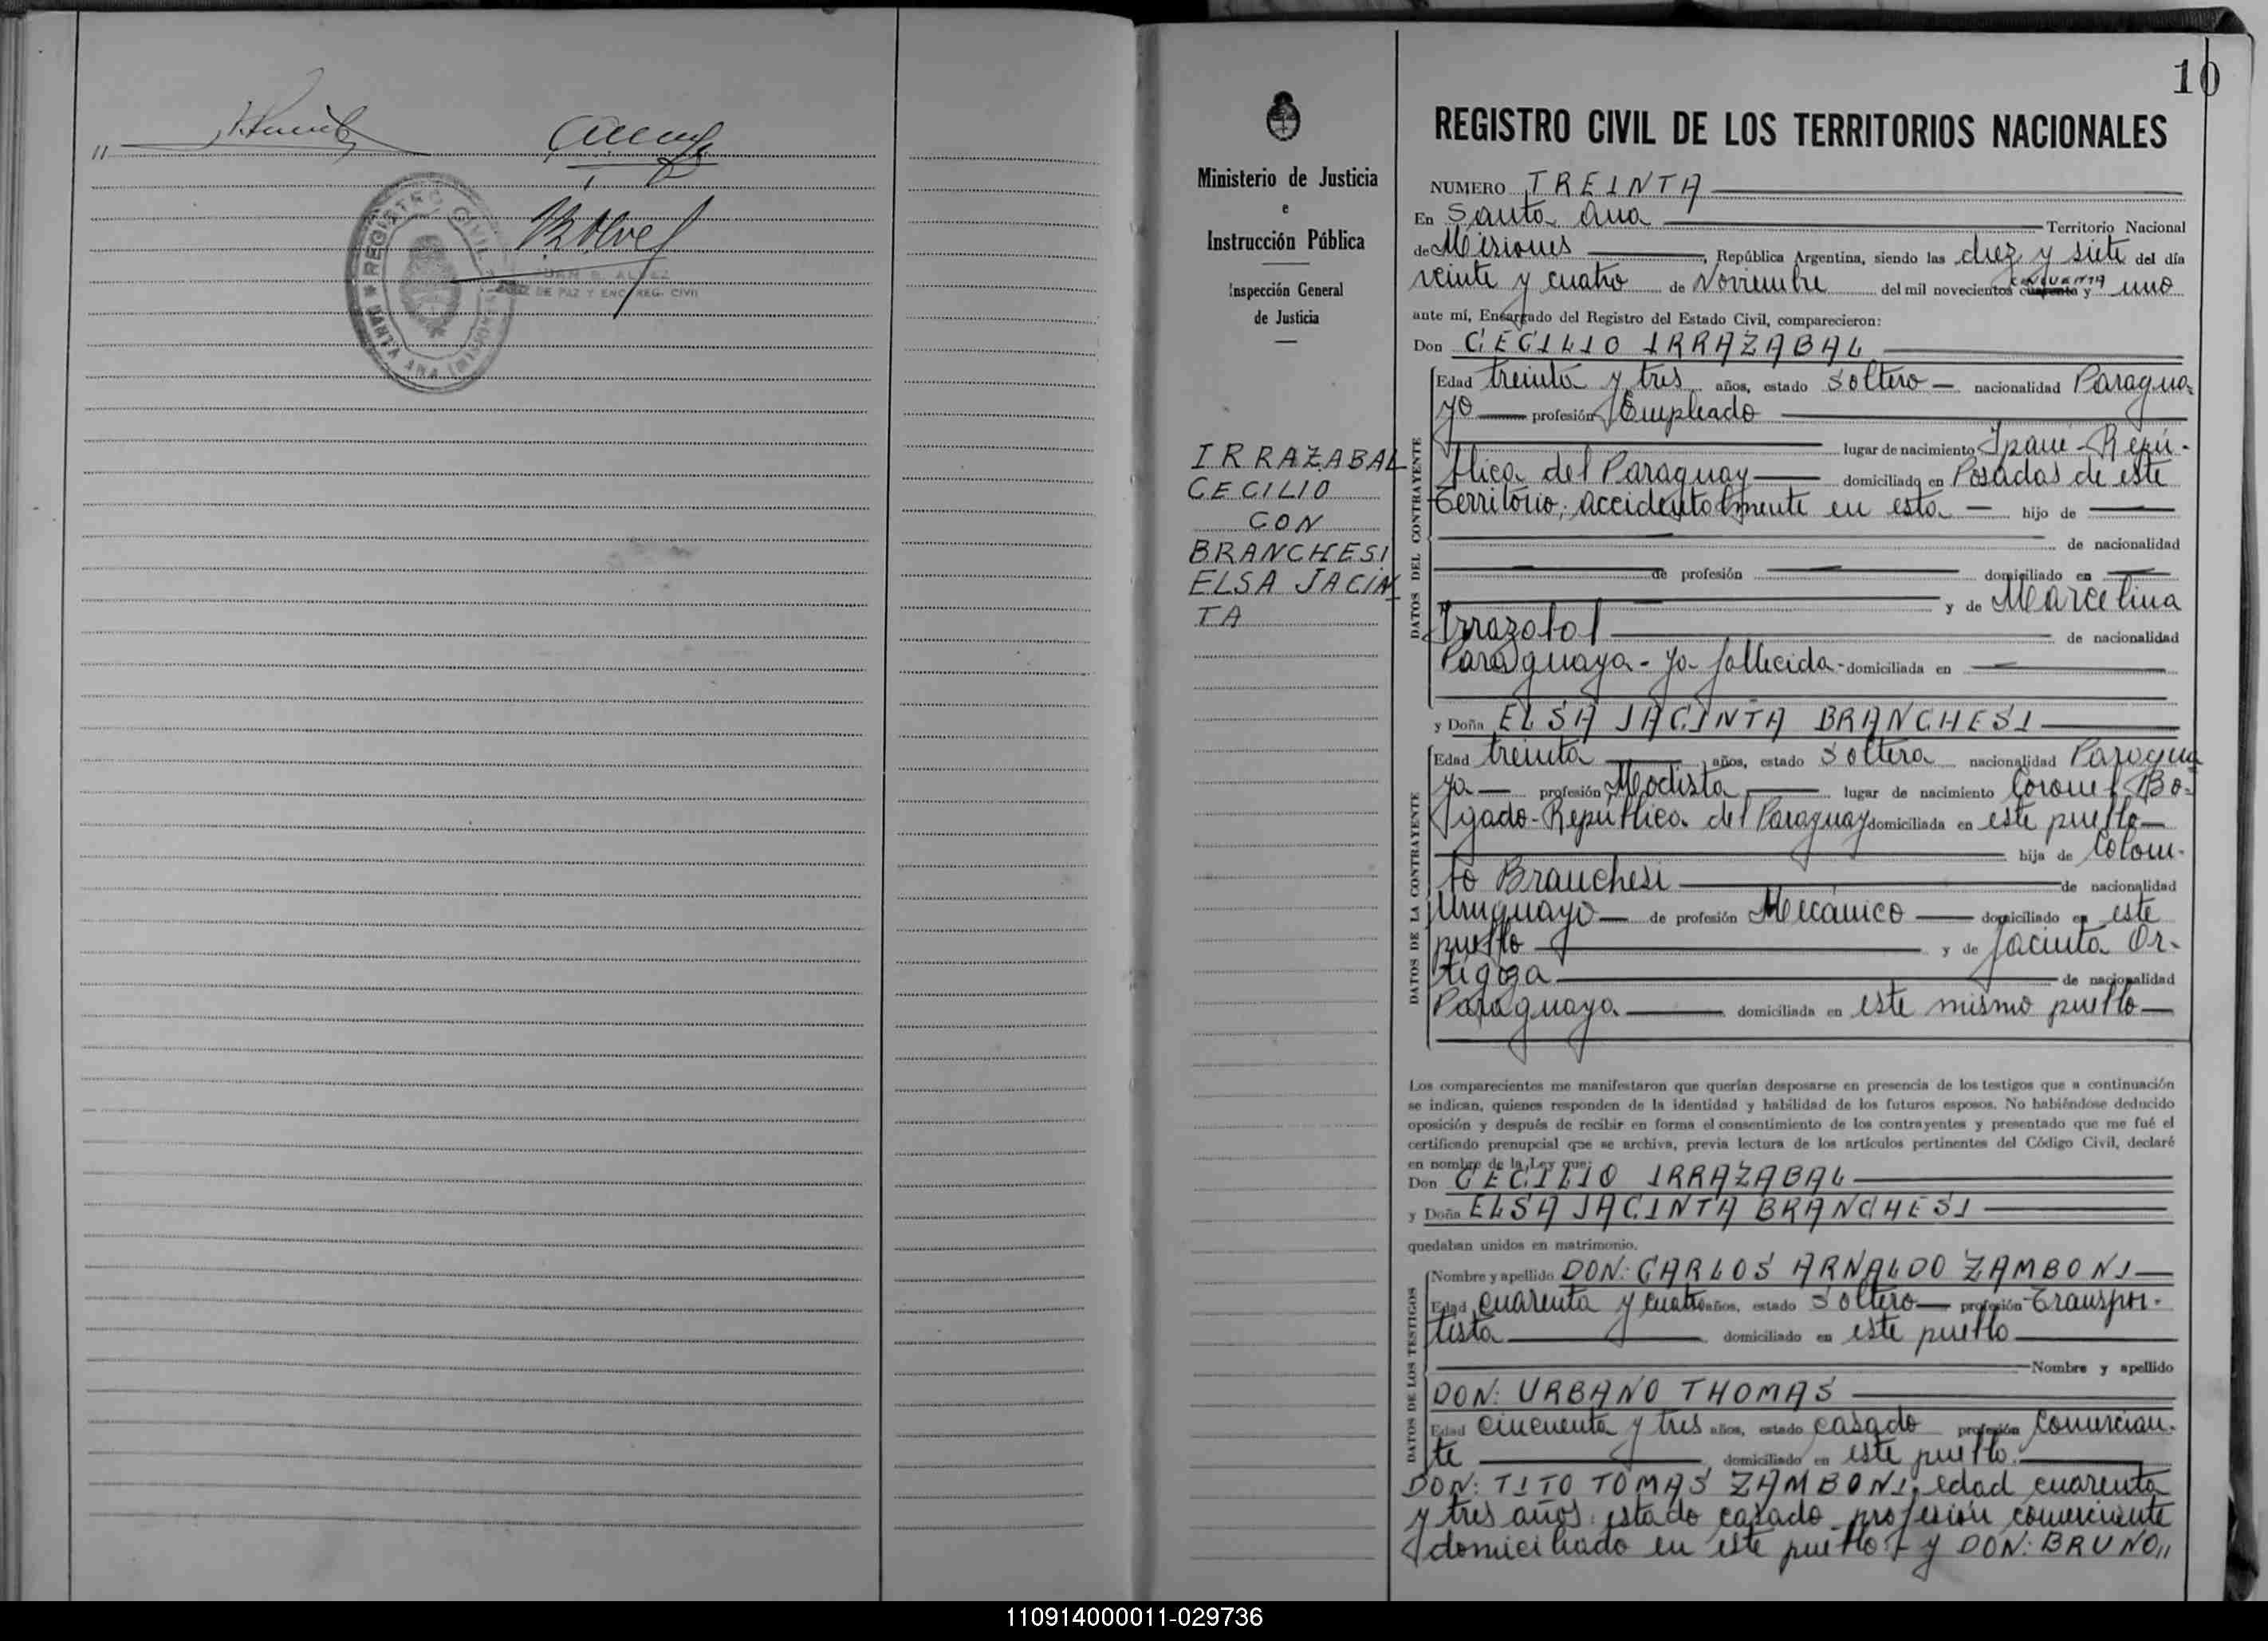 REGISTRO CIVIL
SANTA ANA (MISIONES)
JUAN B. ALVEZ
JUEZ DE PAZ Y ENC. REG. CIVIL
10
Ministerio de Justicia
e
Instrucción Pública
Inspección General
de Justicia
IRRAZABAL
CECILIO
CON
BRANCHESI
ELSA JACIN
TA
REGISTRO CIVIL DE LOS TERRITORIOS NACIONALES
NUMERO TREINTA
En Santa Ana Territorio Nacional
de Misiones, República Argentina, siendo las diez y siete del día
veinte y cuatro de Noviembre del mil novecientos cuarenta y CINCUENTA uno
ante mí, Encargado del Registro del Estado Civil, comparecieron:
Don CECILIO IRRAZABAL
DATOS DEL CONTRAYENTE
Edad treinta y tres años, estado soltero — nacionalidad Paragua-
yo — profesión Empleado
lugar de nacimiento Ipané - Repú-
blica del Paraguay domiciliado en Posadas de este
territorio, accidentalmente en esta — hijo de
de nacionalidad
de profesión domiciliado en
y de Marcelina
Irrazabal de nacionalidad
Paraguaya - ya fallecida - domiciliada en
y Doña ELSA JACINTA BRANCHESI
DATOS DE LA CONTRAYENTE
Edad treinta años, estado soltera nacionalidad Paragua
ya — profesión Modista lugar de nacimiento Coronel Bo-
gado - República del Paraguay domiciliada en este pueblo —
hija de Colom-
bo Branchesi de nacionalidad
Uruguayo — de profesión Mecánico — domiciliado en este
pueblo y de Jacinta Or-
tigoza de nacionalidad
Paraguaya domiciliada en este mismo pueblo —
Los comparecientes me manifestaron que querían desposarse en presencia de los testigos que a continuación
se indican, quienes responden de la identidad y habilidad de los futuros esposos. No habiéndose deducido
oposición y después de recibir en forma el consentimiento de los contrayentes y presentado que me fué el
certificado prenupcial que se archiva, previa lectura de los artículos pertinentes del Código Civil, declaré
en nombre de la Ley que:
Don CECILIO IRRAZABAL
y Doña ELSA JACINTA BRANCHESI
quedaban unidos en matrimonio.
DATOS DE LOS TESTIGOS
Nombre y apellido DON: CARLOS ARNALDO ZAMBONI —
Edad cuarenta y cuatro años, estado soltero — profesión Transpor-
tista domiciliado en este pueblo
Nombre y apellido
DON: URBANO THOMAS
Edad cincuenta y tres años, estado casado profesión Comercian-
te domiciliado en este pueblo.
DON: TITO TOMAS ZAMBONI, edad cuarenta
y tres años: estado casado profesión comerciante
domiciliado en este pueblo.- y DON: BRUNO,,
110914000011-029736